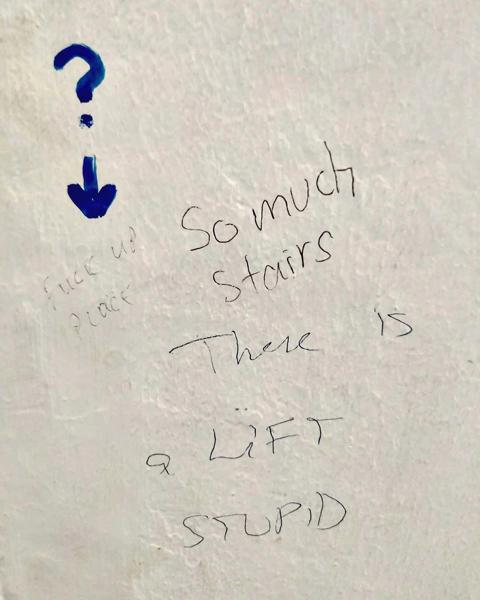 ?
Fuck up
Place
So much
Stairs
There is
a LiFT
STUPID